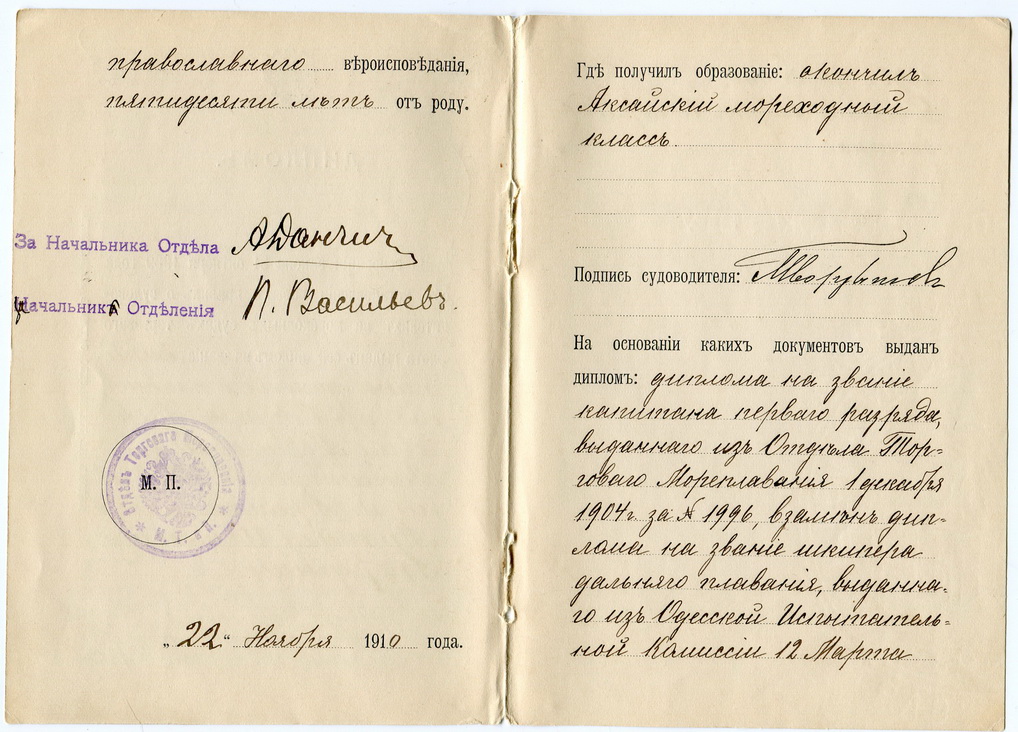 православнаго вѣроисповѣданія,
пятидесяти лѣтъ отъ роду.
За Начальника Отдѣла
Начальникъ Отдѣленія П. Васильевъ.
Отдѣлъ Торговаго Мореплаванія
М. Т. и П.
М. П.
„22“ Ноября 1910 года.
Гдѣ получилъ образованіе: окончилъ
Аксайскій мореходный
классъ.
Подпись судоводителя:
На основаніи какихъ документовъ выданъ
дипломъ: диплома на званіе
капитана перваго разряда,
выданнаго изъ Отдѣла Тор-
говаго Мореплаванія 1 декабря
1904 г. за № 1996, взамѣнъ дип-
лома на званіе шкипера
дальняго плаванія, выданна-
го изъ Одесской Испытатель-
ной Комиссіи 12 Марта